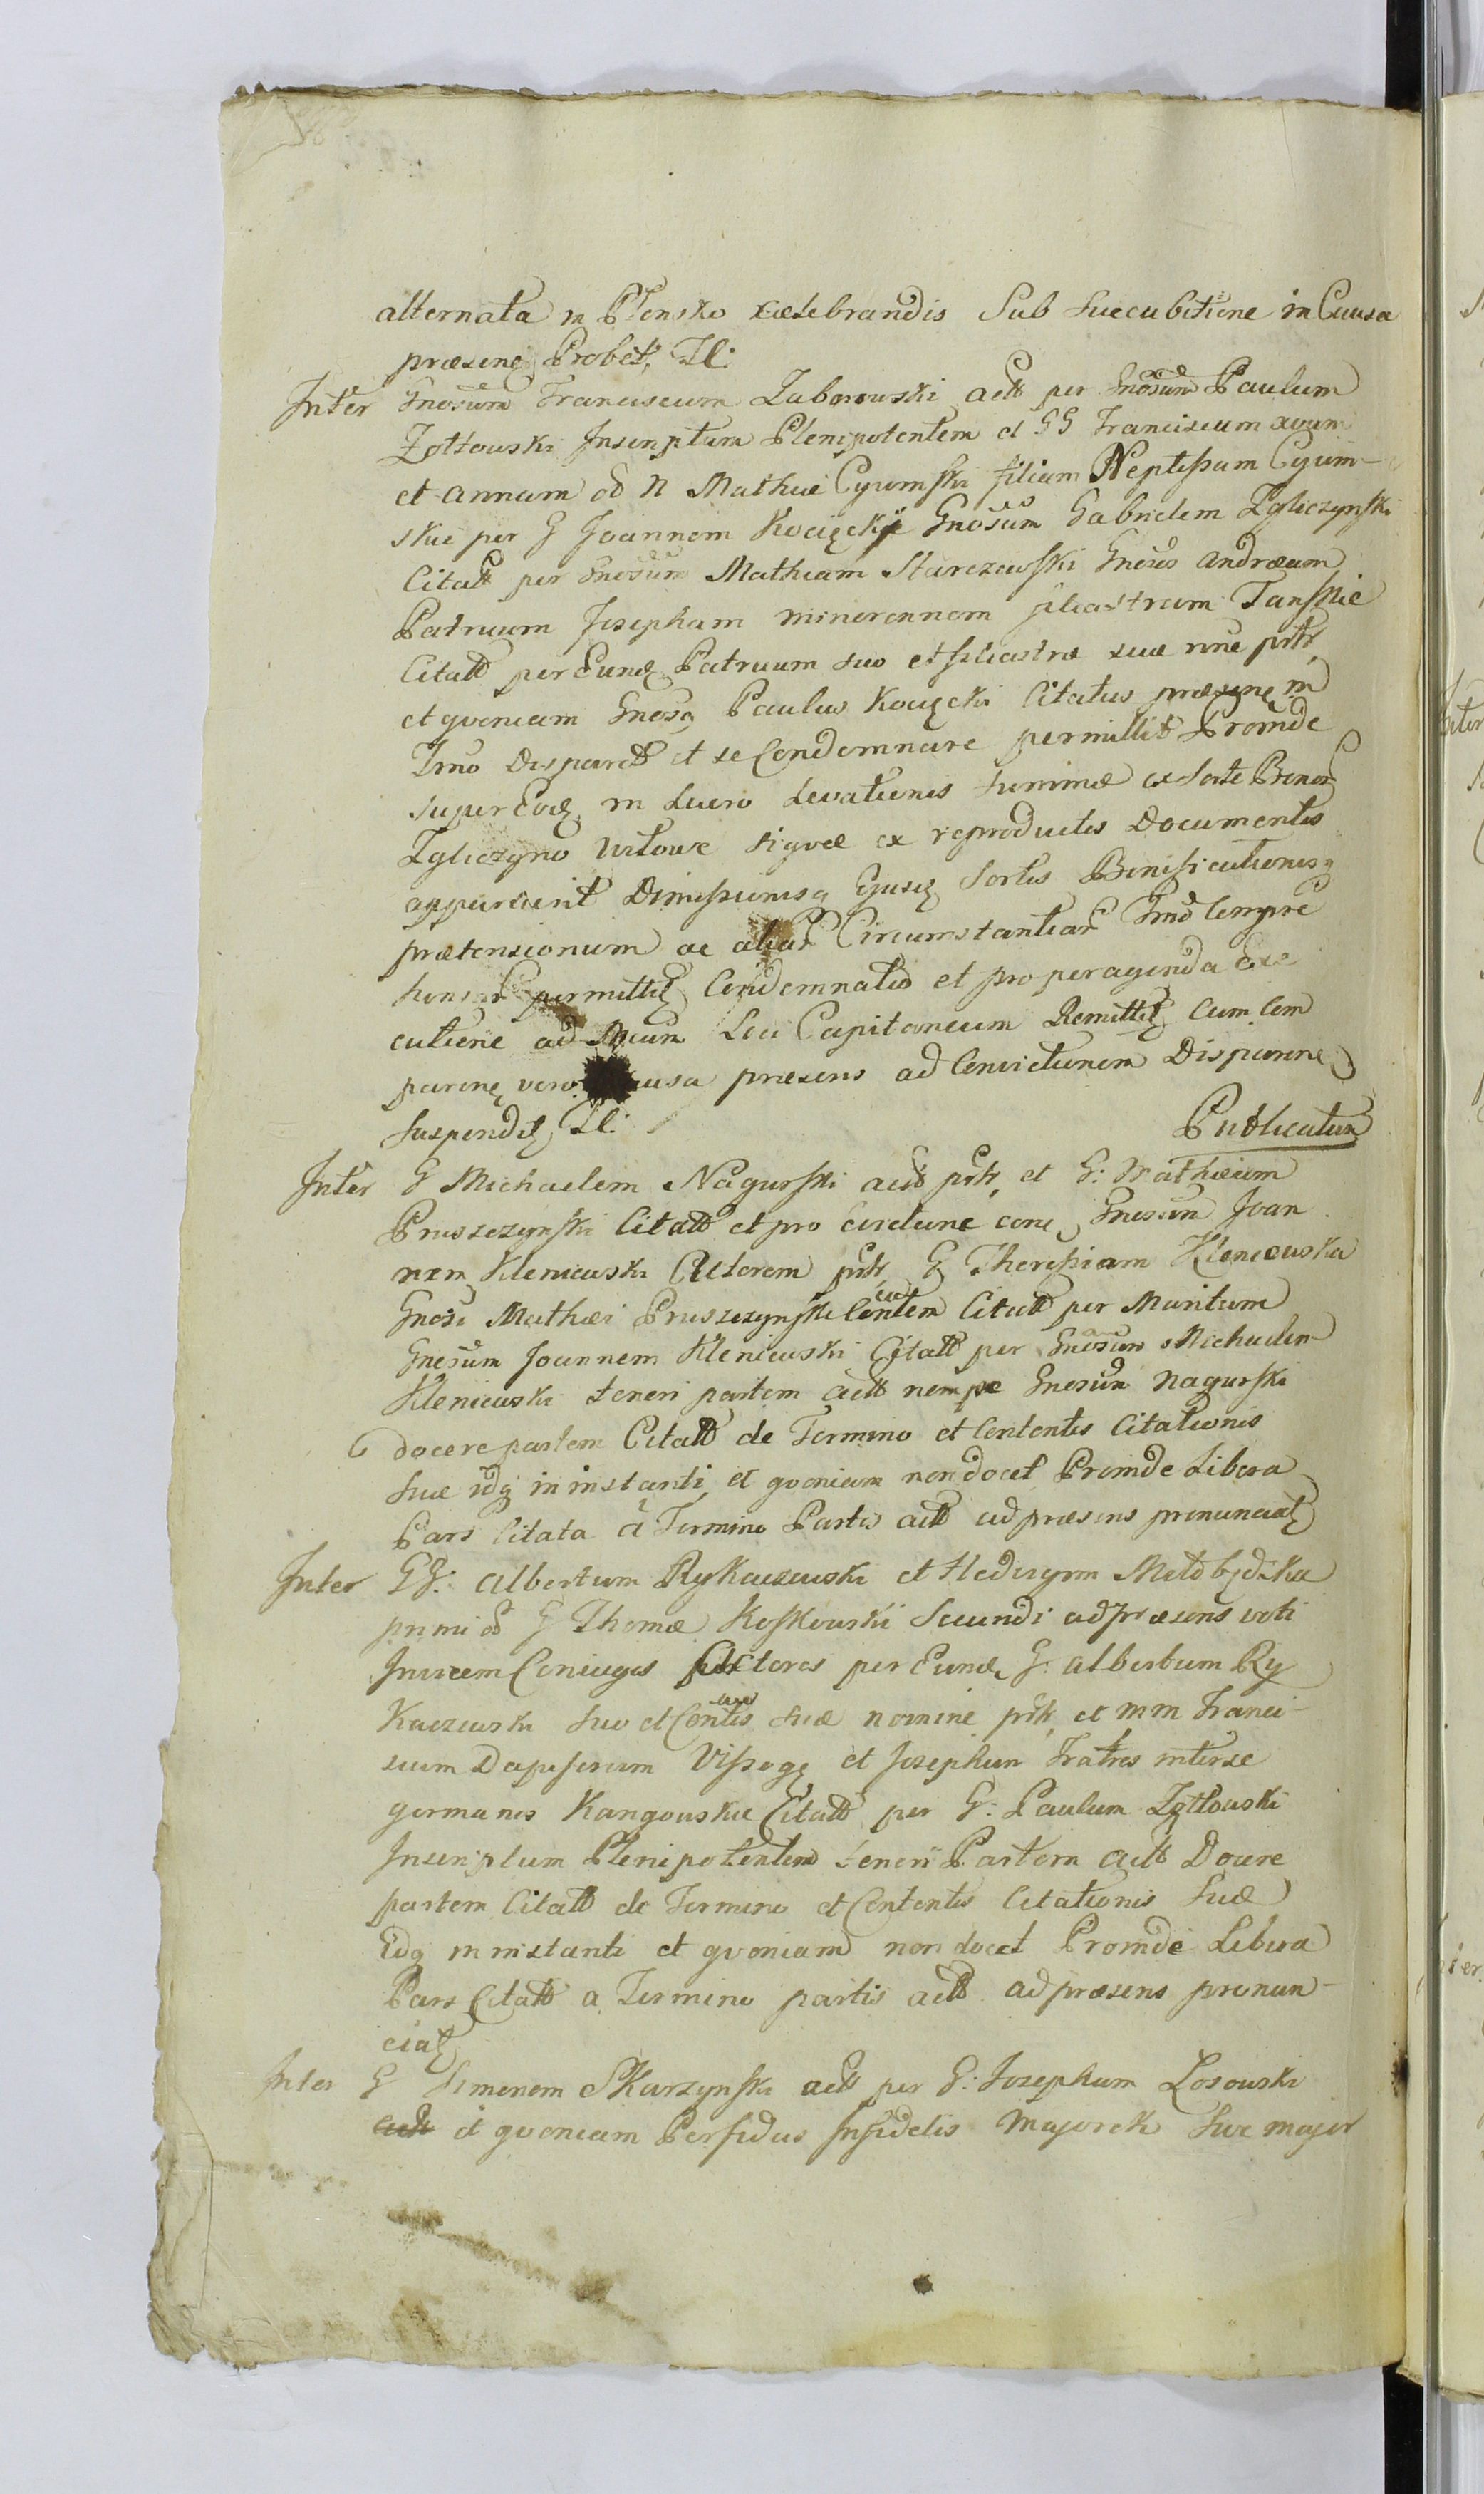 alternata in Płonsko cælebrandis Sub Succubitione in Causa
præsenẽ Probet, Il:
Inter Gnosum Franciscum Zaborowski actt per Gnosum Paulum
Zołtowski Inscriptum Plenipotentem et GG Franciscum avum
et annam od N Mathiæ Cyrumski filiam Neptissam Cyrum-
skie per G Joannem Kocięcki Gnosum Gabrielem Zgliczynski
Citatt per Gnosum Mathiam Starczewski Gnosos Andræam
Patruum Josepham minorennem filiastram Tanskie
Citatt per Eund Patruum suo et filiastræ suæ nne prtr
et qvoniam Gnosq Paulus Kocięcki Citatus præsenẽ in
Tmo Disparet et se Condemnare permittit Proinde
super Eod in Lucro Levationis summæ ex Sorte Bonor
Zgliczyno Witowe siqvæ ex reproductis Documentis
apparuerit Dimissionisq Ejusq Sortis Bonificationisq
prætensionum ac aliar Circumstantiar Tmo Compre
hensar permittit Condemnatio et pro peragenda exe
cutione ad Locum Seu Capitaneum Remittit Cum Com
parenẽ vero Causa præsens ad Convictionem Disparenẽ
Suspendit Il: Publicatum
Inter G Michaelem Nagurski actt prtr, et G: Mathæum
Pruszczynski Citatt et pro evictione conc Gnosum Joan
nem Kleniewski Actorem prtr G Theressiam Kleniewska
Gnosi Mathæi Pruszczynski Contem Citatt per Maritum
Gnosum Joannem Kleniewski Citatt per Gnosum Michaelem
Kleniewski teneri partem actt nempe Gnosum Nagurski
docere partem Citatt de Termino et Contentis Citationis
Suæ idq in instanti et qvoniam non docet Proinde Libera
Pars Citata a Termino Partis actt ad præsens pronunciat
Inter GG: Albertum Rykaczewski et Hedvigym
primi od G Thomæ Koskowski Secundi ad præsens voti
Invicem Coniuges Actores per Eund G: Albertum Ry
kaczewski suo et Contis suæ nomine prtr et MM Franci-
scum Dapiferum Vissogẽ et Josephum Fratres inter se
germanos Kangowskie Citatt per G: Paulum Zołtowski
Inscriptum Plenipotentem teneri Partem actt Docere
partem Citatt de Termino et Contentis Citationis Suæ
Idq in instanti et qvoniam non docet Proinde Libera
Pars Citatt a Termino partis actt ad præsens pronun-
ciat
Inter G Simonem Skarzynski actt per G: Josephum Losowski
actt et qvoniam Perfidus Infidelis Majorek Sive major